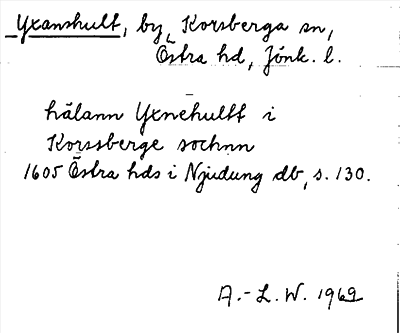 Yxanshult, by, Korsberga sn,
Östra hd, Jönk. l.
hälann Yxnehultt i
Korssberge sochnn
1605 Östra hds i Njudung db, s. 130.
A.-L. W. 1969